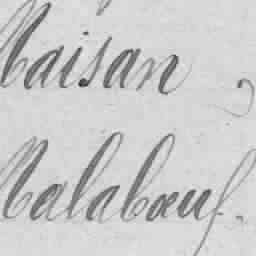 Maisan,
Malabœuf.